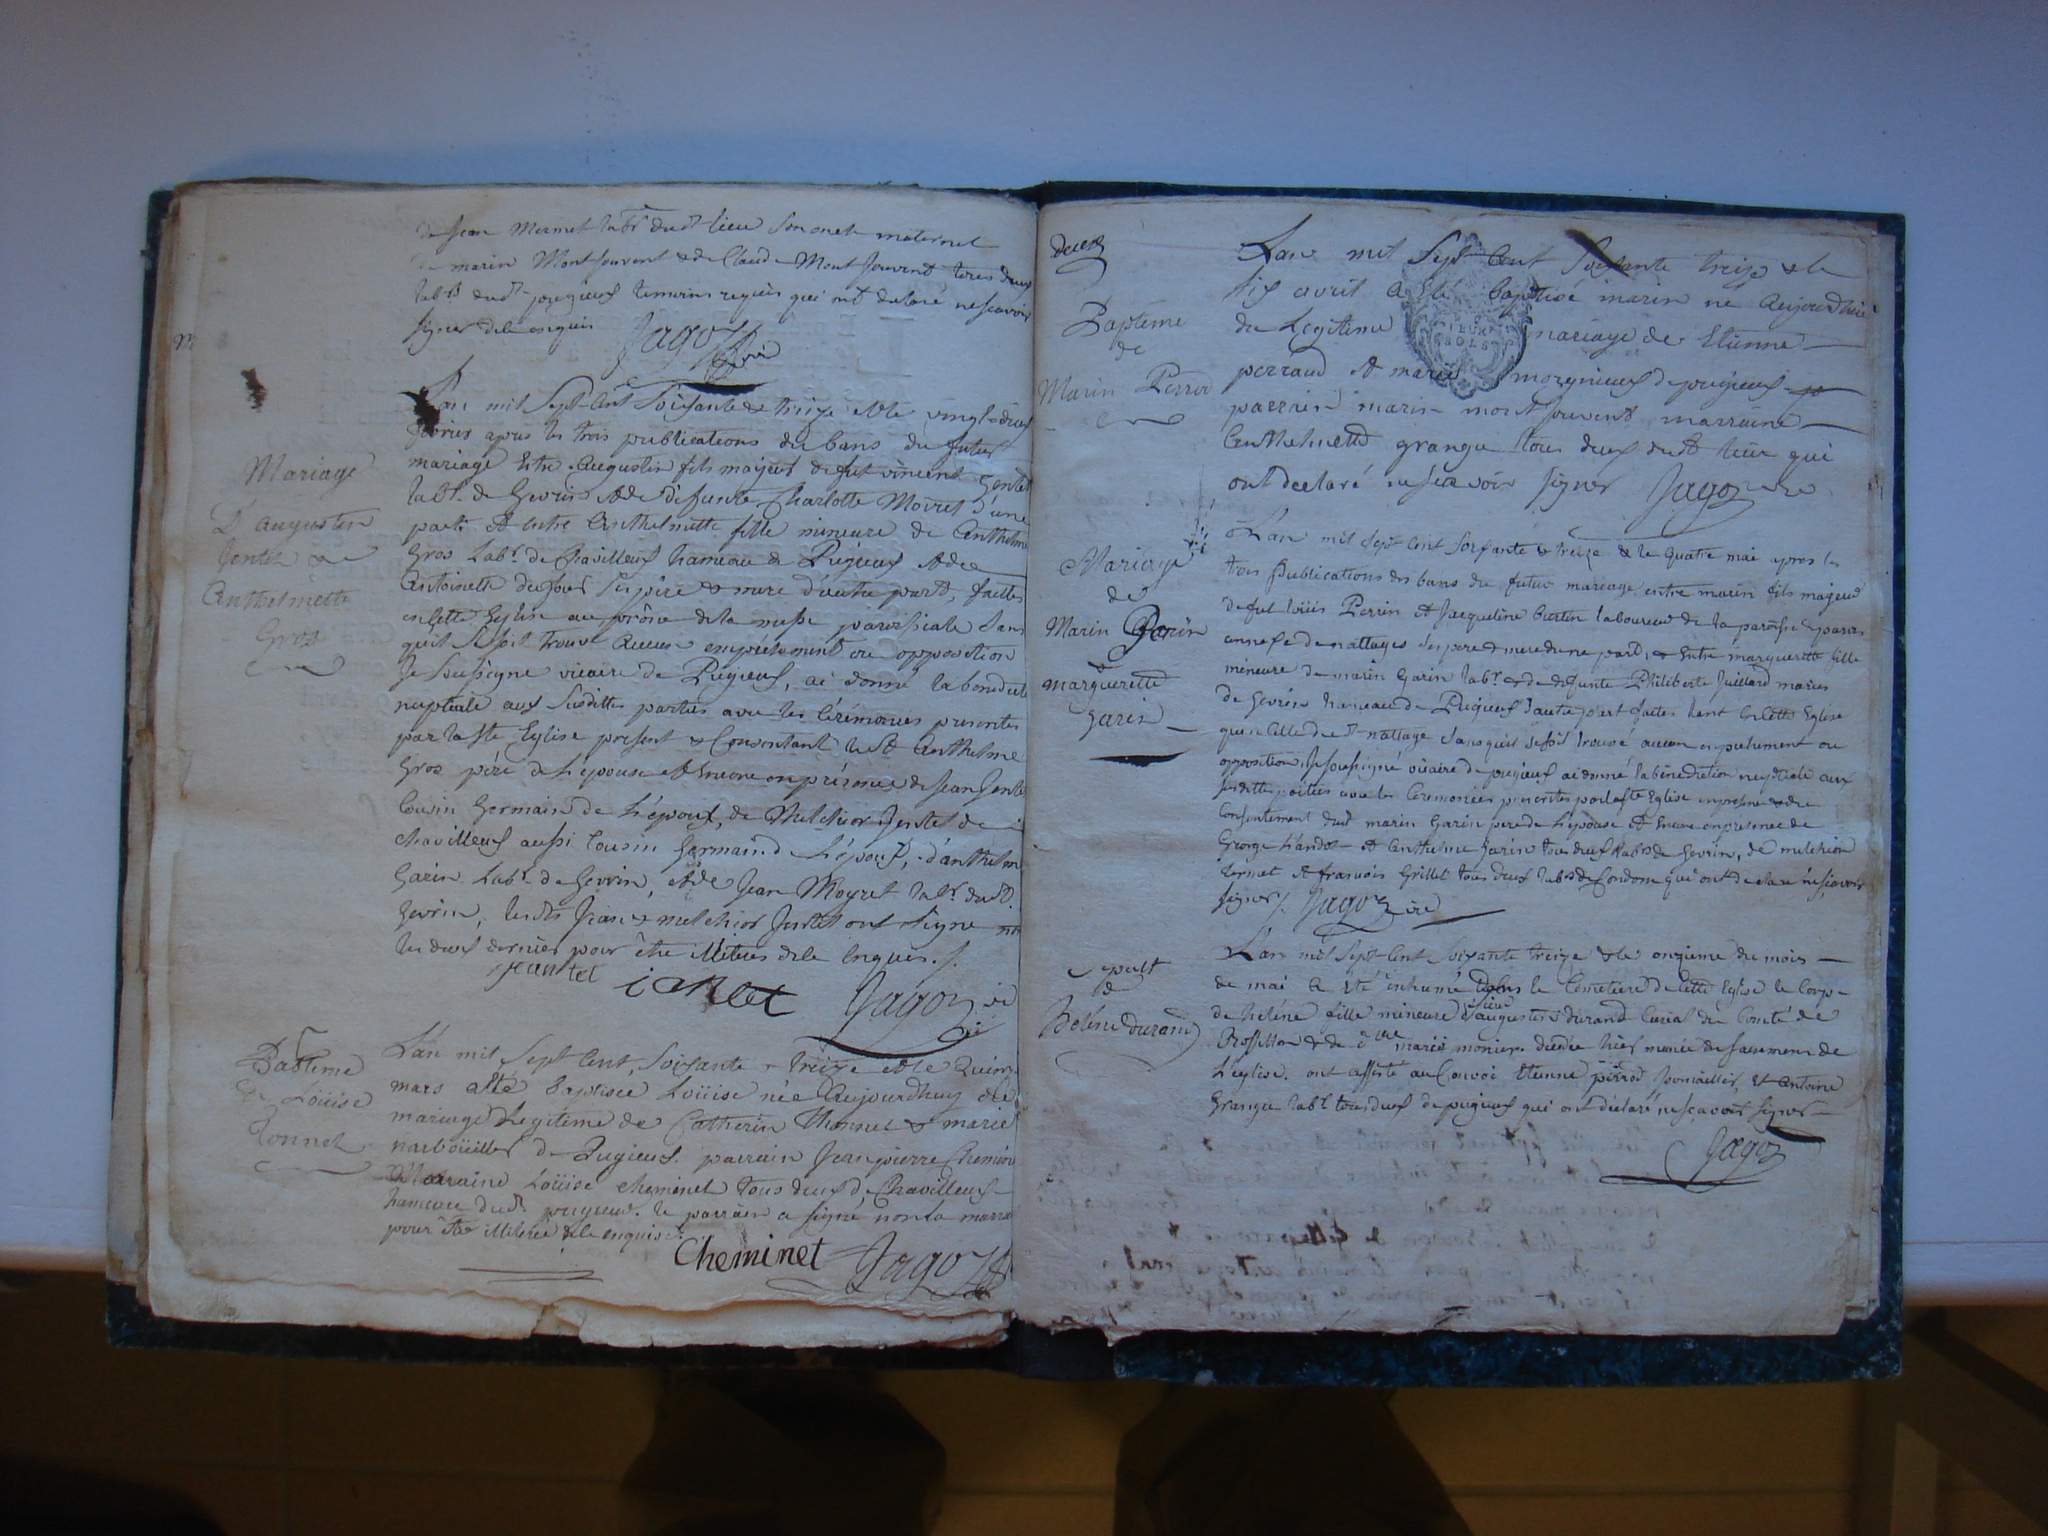 de Jean Mermet lab.r dud.t lieu son oncle maternel
de marin Montjouvent & de Claude Montjouvent tous deux
lab.rs dud.t pugieux temoins requis qui ont declaré ne scavoir
signer de ce enquis Jagoz vic
Mariage
D'augustin
Jentel &
Anthelmette
Gros
L'an mil Sept Cent Soixante & treize & le vingt deux
fevrier apres les trois publications de bans du futur
mariage Entre Augustin fils majeur de fut vincent Gentel
lab.r de Gevrin & de defunte Charlotte Moiret d'une
part Et entre Anthelmette fille mineure de Anthelme
Gros Lab.r de Chavilleux hameau de Pugieux & de
Antoinette dufour ses pere & mere d'autre part, faittes
en Cette Eglise au prône de la messe paroissiale Sans
qu'il se soit trouvé Aucun empêchement ou opposition
Je Soussigné vicaire de Pugieux, ai donné la benediction
nuptiale aux Susdittes parties avec les Cérémonies prescrites
par la S.te Eglise present & Consentant led.t Anthelme
Gros pére de l'epouse et Encore en présence de Jean Jentel
Cousin Germain de l'époux, de Melchior Jentel de
Chavilleux aussi Cousin Germain de l'époux, d'anthelme
Garin Lab.r de Gevrin, et de Jean Moyret lab.r dud.t
Gevrin, lesd.ts Jean & melchior Jentel ont signé non
les deux derniers pour être illiterés de ce Enquis ./.
jeantel Jagoz vic
Batême
de Loüise
Tonnet
L'an mil Sept Cent Soixante & treize & le Quinze
mars a Eté Baptisée Loüise née Aujourdhuy du
mariage Legitime de Catherin Thonnet & marie
narboüillet de Pugieux. parrain Jean pierre Cheminet
Marraine Loüise cheminet tous deux de Chavilleux
hameau dud.t pugieux. le parrain a signé non la marraine
pour être illiterée de ce enquise.
Cheminet Jagoz
Baptême
de
Marin Perrod
L'an mil Sept Cent Soixante treize & le
six avril a Eté Baptisé marin né Aujourdhui
du Legitime mariage de Etienne
perraud Et marie morgnieux de pugieux
parrain marin montjouvent marraine
Anthelmette grange tous deux dud.t lieu qui
ont declaré ne scavoir signer Jagoz vic
Mariage
de
Marin Perrin
&
Marguerette
Garin
L'an mil sept Cent Soixante & treize & le quatre mai apres les
trois Publications des bans du futur mariage entre marin fils majeur
de fut loüis Perrin Et Jacqueline Bertin laboureur de la paroisse de parves
annexe de nattages ses pere & mere d'une part, & Entre marguerette fille
mineure de marin Garin lab.r & de defunte Philiberte Juillard maries
de Gevrin hameau de Pugieux d'autre part faites tant en Cette Eglise
qu'en Celle de nattage sans qu'il se soit trouvé aucun empechement ou
opposition, Je soussigné vicaire de pugieux ai donné la bénediction nuptiale aux
susditte parties avec les Ceremonies prescrites par la S.te Eglise en presence & du
Consentement dud.t marin Garin pere de l'epouse Et Encore en presence de
George Landot Et Anthelme Garin tous deux Lab.rs de Gevrin, de melchior
Jernet Et francois Grillet tous deux lab.rs de Condom qui ont declare ne scavoir
signer ./. Jagoz vic
Sepult
de
Helene durand
L'an mil Sept Cent Soixante treize & le onzieme du mois
de mai a Eté inhumé dans le Cemetiere de Cette Eglise le Corps
de heléne fille mineure de sieur augustin durand Curial du Comté de
Rossillon & de marie monier decedée hier munie des sacremens de
L'eglise. ont assisté au Convoi Etienne pérrod et Antoine
Grange lab.rs tous deux de pugieux qui ont déclaré ne scavoir signer
Jagoz